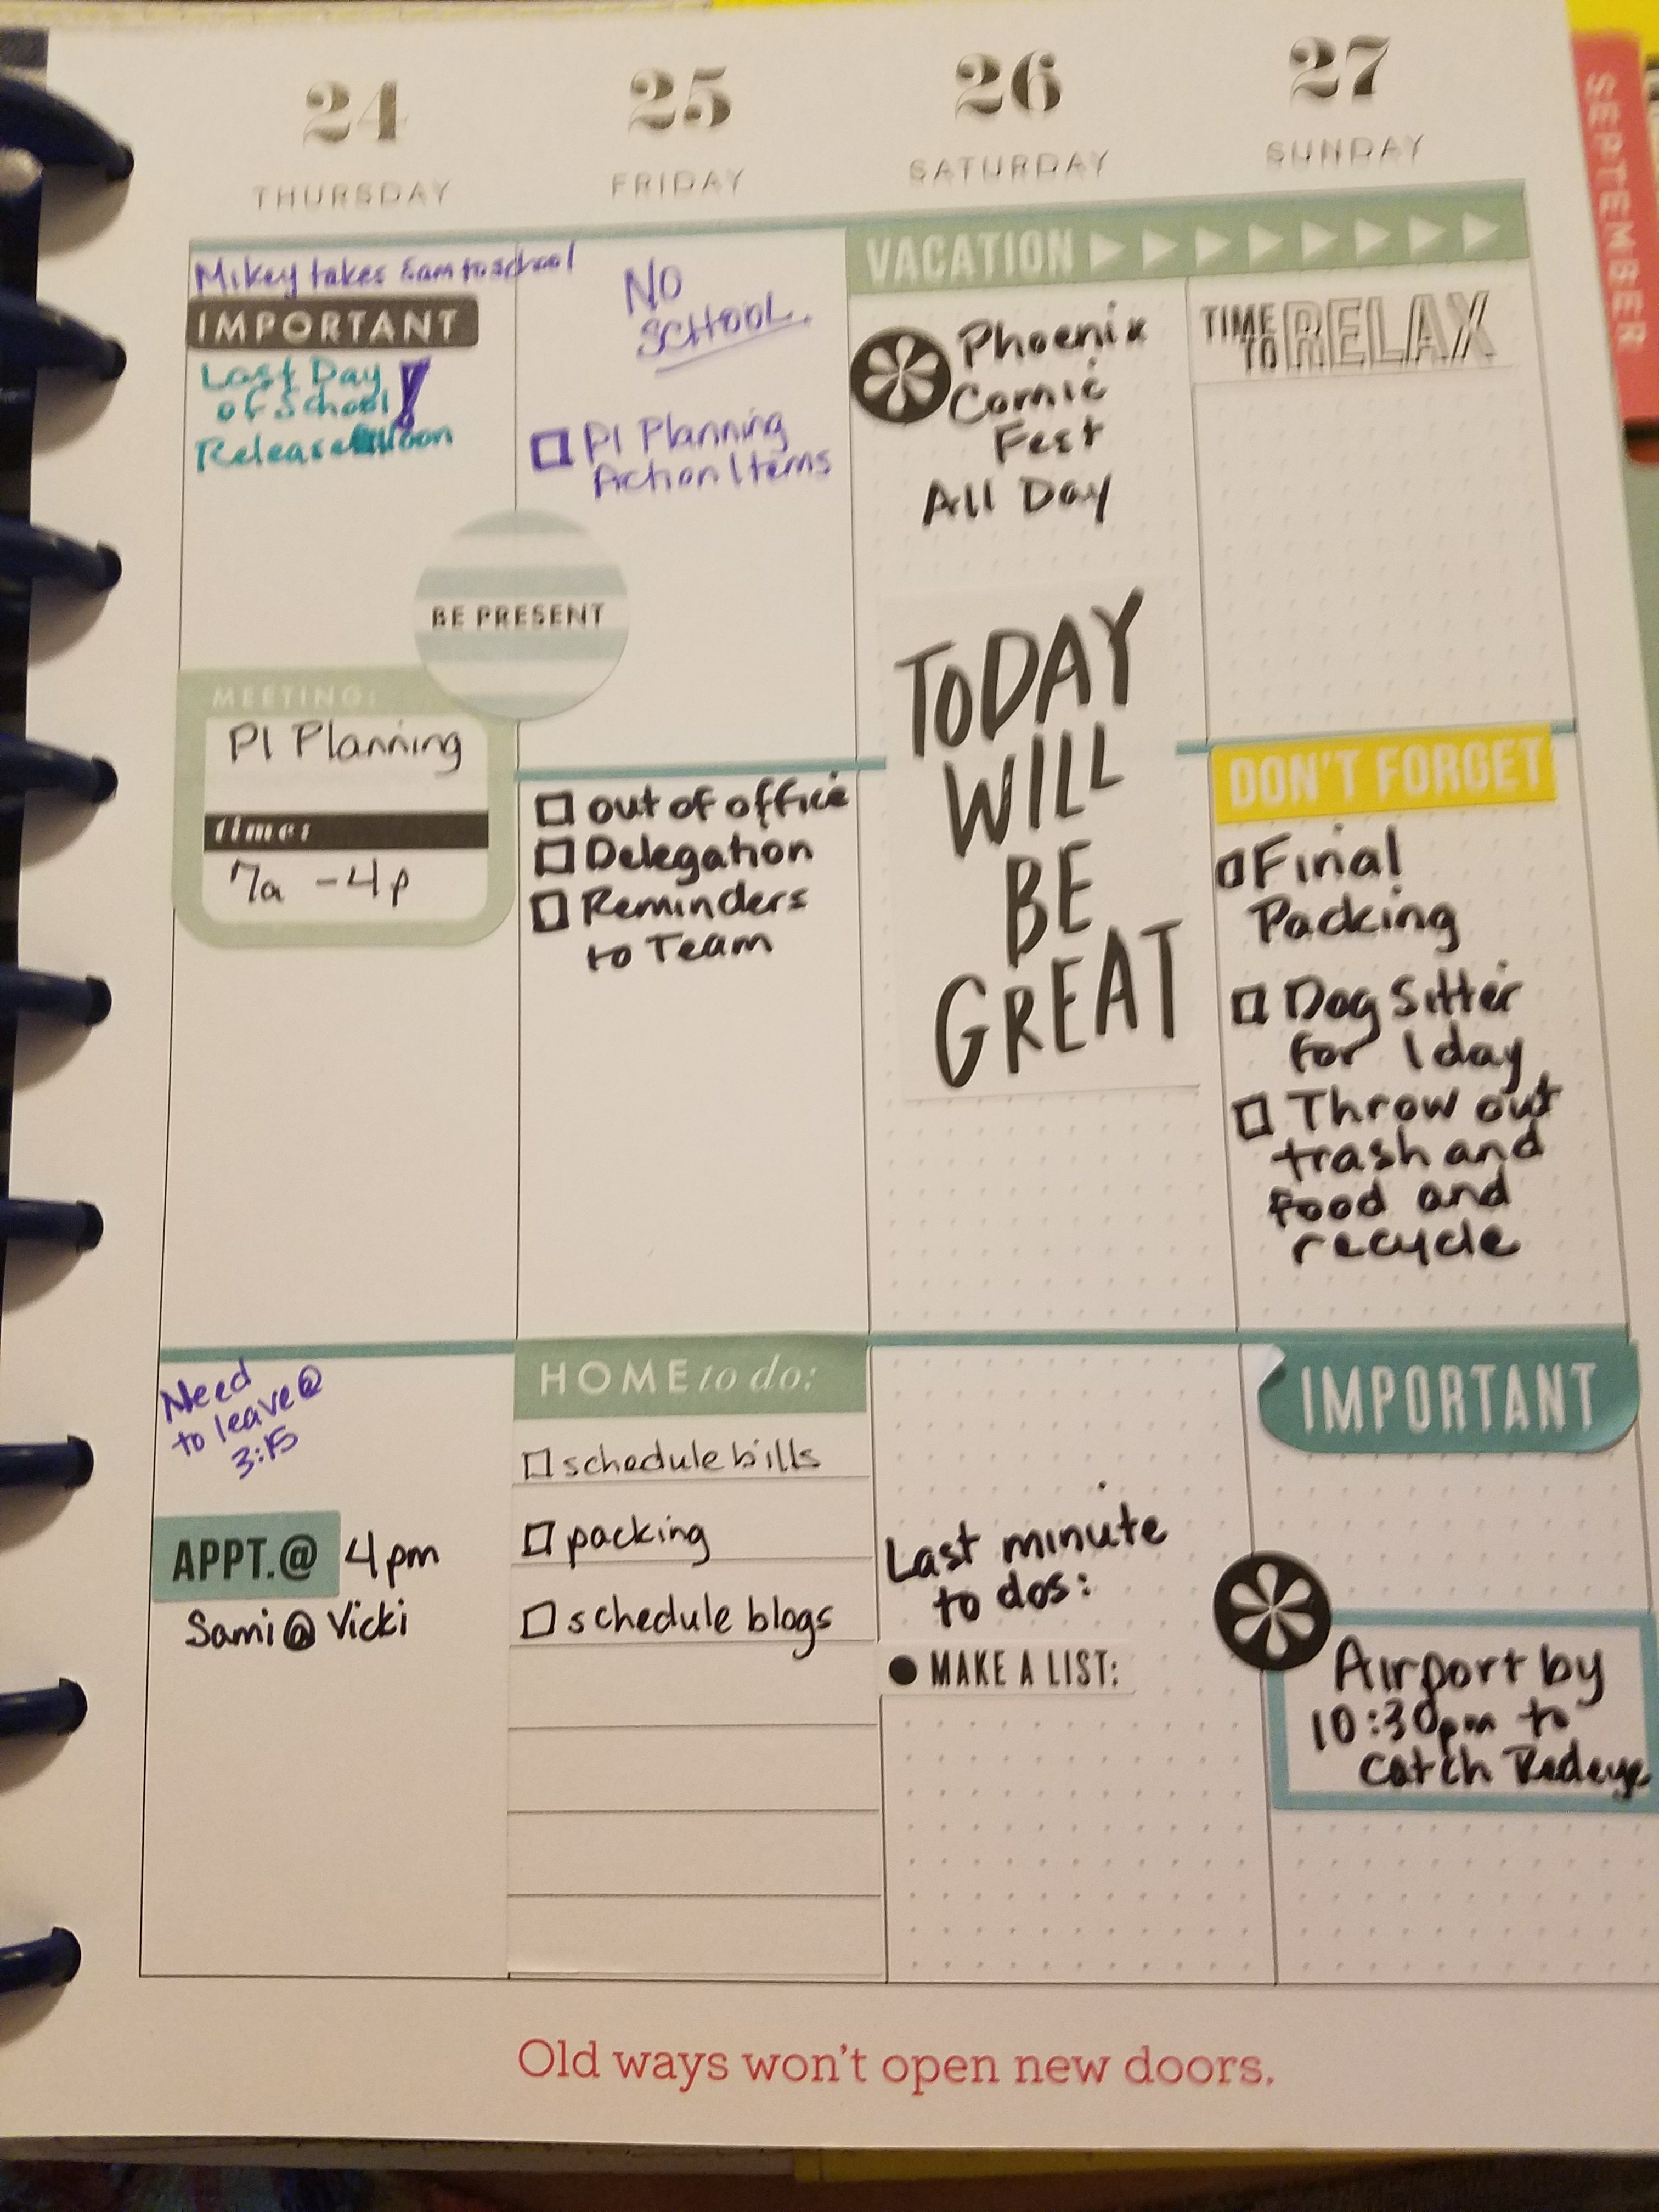 24
THURSDAY
Mikey takes Sam to school
IMPORTANT
Last Day
of School!
Release Noon
MEETING:
PI Planning
time:
7a - 4p
Need
to leave @
3:15
APPT.@ 4pm
Sami @ Vicki
BE PRESENT
25
FRIDAY
NO
SCHOOL.
PI Planning
Action Items
out of office
Delegation
Reminders
to Team
HOME to do:
schedule bills
packing
schedule blogs
26
SATURDAY
VACATION
Phoenix
Comic
Fest
All Day
TODAY
WILL
BE
GREAT
Last minute
to dos:
MAKE A LIST:
27
SUNDAY
TIME
TO RELAX
DON'T FORGET
Final
Packing
Dog Sitter
for 1 day
Throw out
trash and
food and
recycle
IMPORTANT
Airport by
10:30pm to
catch Redeye
SEPTEMBER
Old ways won't open new doors.